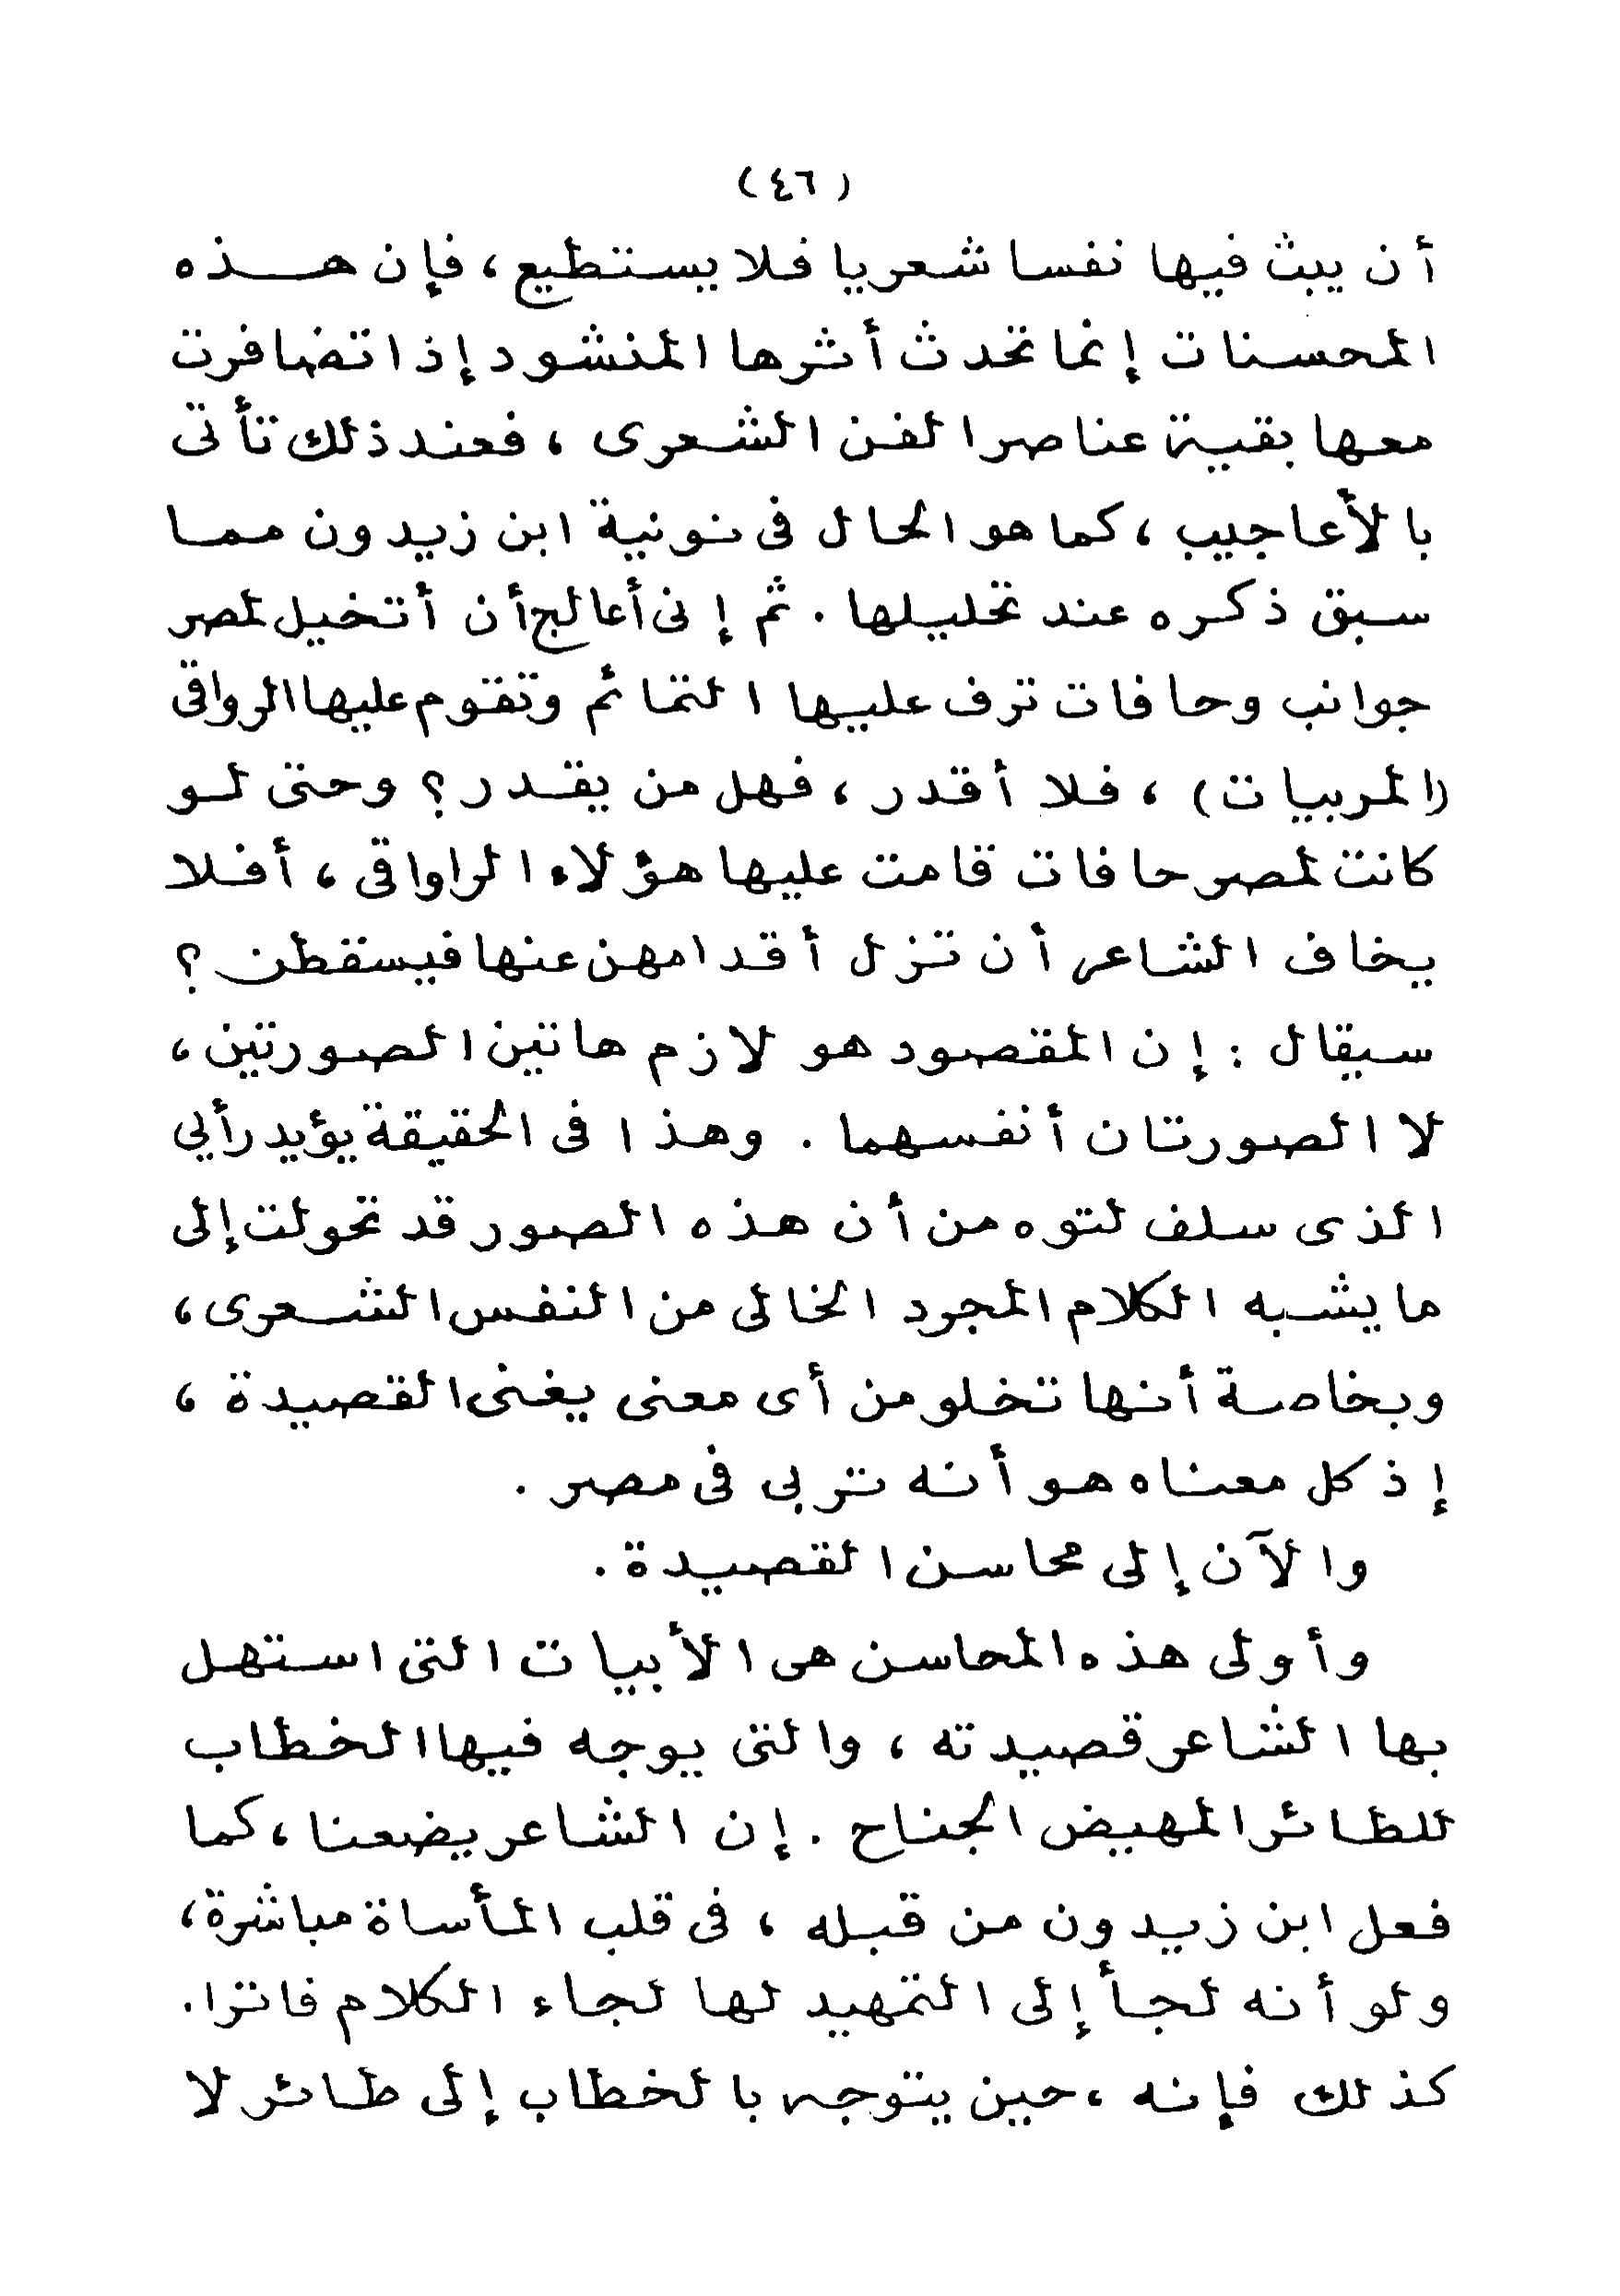 (٤٦)
أن يبث فيها نفسا شعريا فلا يستطيع، فإن هذه
المحسنات إنما تحدث أثرها المنشود إذا تضافرت
معها بقية عناصر الفن الشعرى، فعند ذلك تأتى
بالأعاجيب، كما هو الحال فى نونية ابن زيدون مما
سبق ذكره عند تحليلها. ثم إنى أعالج أن أتخيل لمصر
جوانب وحافات ترف عليها التمائم وتقوم عليها الرواقى
(المربيات)، فلا أقدر، فهل من يقدر؟ وحتى لو
كانت لمصر حافات قامت عليها هؤلاء الراواقى، أفلا
يخاف الشاعر أن تزل أقدامهن عنها فيسقطن؟
سيقال: إن المقصود هو لازم هاتين الصورتين،
لا الصورتان أنفسهما. وهذا فى الحقيقة يؤيد رأيى
الذى سلف لتوه من أن هذه الصور قد تحولت إلى
ما يشبه الكلام المجرد الخالى من النفس الشعرى،
وبخاصة أنها تخلو من أى معنى يغنى القصيدة،
إذ كل معناه هو أنه تربى فى مصر.
والآن إلى محاسن القصيدة.
وأولى هذه المحاسن هى الأبيات التى استهل
بها الشاعر قصيدته، والتى يوجه فيها الخطاب
للطائر المهيض الجناح. إن الشاعر يضعنا، كما
فعل ابن زيدون من قبله، فى قلب المأساة مباشرة،
ولو أنه لجأ إلى التمهيد لها لجاء الكلام فاترا.
كذلك فإنه، حين يتوجه بالخطاب إلى طائر لا